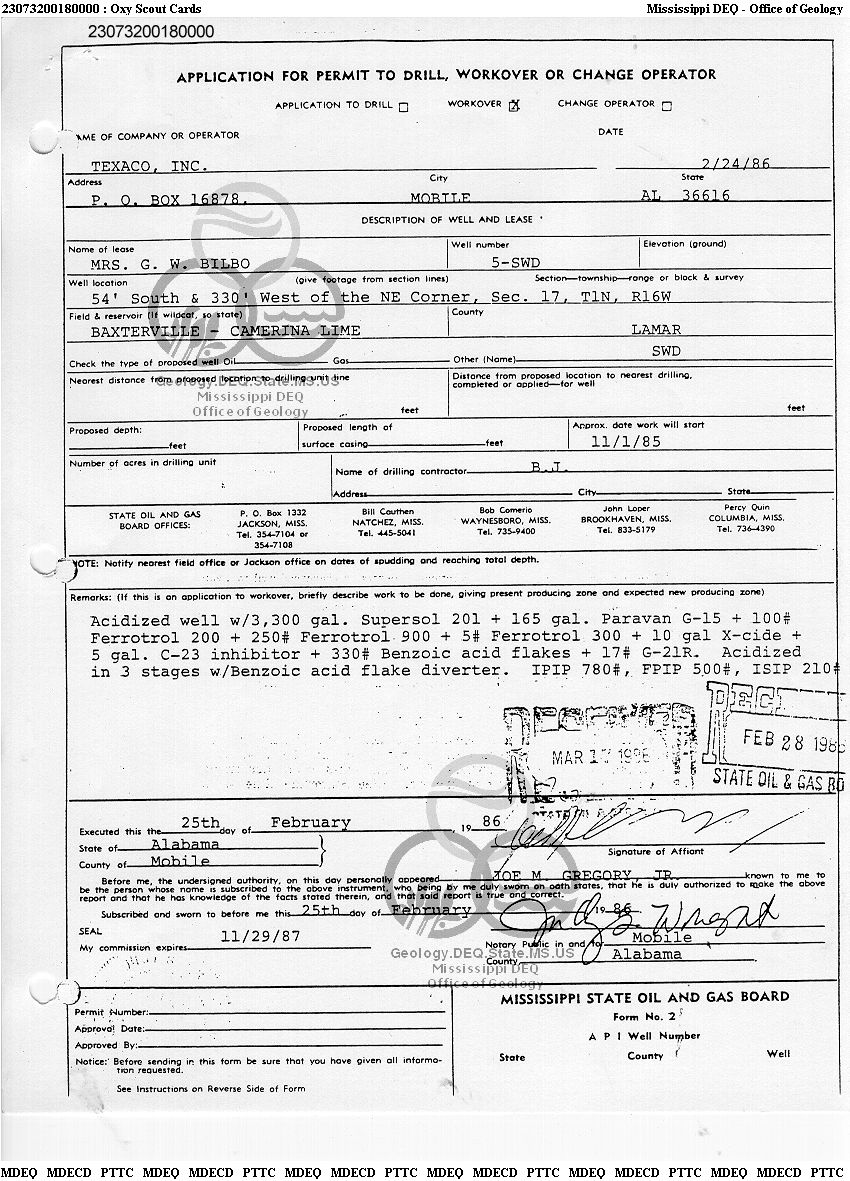 23073200180000 : Oxy Scout Cards Mississippi DEQ - Office of Geology
23073200180000
APPLICATION FOR PERMIT TO DRILL, WORKOVER OR CHANGE OPERATOR
APPLICATION TO DRILL □ WORKOVER ☒ CHANGE OPERATOR □
AME OF COMPANY OR OPERATOR DATE
TEXACO, INC. 2/24/86
Address City State
P. O. BOX 16878. MOBILE AL 36616
DESCRIPTION OF WELL AND LEASE
Name of lease Well number Elevation (ground)
MRS. G. W. BILBO 5-SWD
Well location (give footage from section lines) Section—township—range or block & survey
54' South & 330' West of the NE Corner, Sec. 17, T1N, R16W
Field & reservoir (If wildcat, so state) County
BAXTERVILLE - CAMERINA LIME LAMAR
SWD
Check the type of proposed well Oil Gas Other (Name)
Nearest distance from proposed location to drilling unit line Distance from proposed location to nearest drilling,
completed or applied—for well
Geology.DEQ.State.MS.US
Mississippi DEQ
Office of Geology
feet feet
Proposed depth: Proposed length of Approx. date work will start
feet surface casing feet 11/1/85
Number of acres in drilling unit Name of drilling contractor B.J.
Address City State
STATE OIL AND GAS P. O. Box 1332 Bill Cauthen Bob Comerio John Loper Percy Quin
BOARD OFFICES: JACKSON, MISS. NATCHEZ, MISS. WAYNESBORO, MISS. BROOKHAVEN, MISS. COLUMBIA, MISS.
Tel. 354-7104 or Tel. 445-5041 Tel. 735-9400 Tel. 833-5179 Tel. 736-4390
354-7108
NOTE: Notify nearest field office or Jackson office on dates of spudding and reaching total depth.
Remarks: (If this is an application to workover, briefly describe work to be done, giving present producing zone and expected new producing zone)
Acidized well w/3,300 gal. Supersol 201 + 165 gal. Paravan G-15 + 100#
Ferrotrol 200 + 250# Ferrotrol 900 + 5# Ferrotrol 300 + 10 gal X-cide +
5 gal. C-23 inhibitor + 330# Benzoic acid flakes + 17# G-21R. Acidized
in 3 stages w/Benzoic acid flake diverter. IPIP 780#, FPIP 500#, ISIP 210#
RECEIVED
MAR 1986
RECE
FEB 28 1986
STATE OIL & GAS BO
Executed this the 25th day of February, 19 86
State of Alabama
County of Mobile
Signature of Affiant
Before me, the undersigned authority, on this day personally appeared JOE M. GREGORY, JR. known to me to
be the person whose name is subscribed to the above instrument, who being by me duly sworn on oath states, that he is duly authorized to make the above
report and that he has knowledge of the facts stated therein, and that said report is true and correct.
Subscribed and sworn to before me this 25th day of February 19 86
SEAL
My commission expires 11/29/87
Judy G. Wright
Notary Public in and for Mobile
County, Alabama
Geology.DEQ.State.MS.US
Mississippi DEQ
Office of Geology
Permit Number:
Approval Date:
Approved By:
Notice: Before sending in this form be sure that you have given all informa-
tion requested.
See Instructions on Reverse Side of Form
MISSISSIPPI STATE OIL AND GAS BOARD
Form No. 2
A P I Well Number
State County Well
MDEQ MDECD PTTC MDEQ MDECD PTTC MDEQ MDECD PTTC MDEQ MDECD PTTC MDEQ MDECD PTTC MDEQ MDECD PTTC